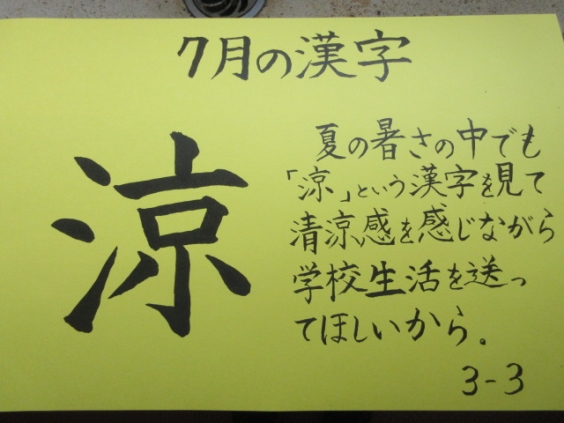 7月の漢字
涼
夏の暑さの中でも
「涼」という漢字を見て
清涼感を感じながら
学校生活を送っ
てほしいから。
3-3